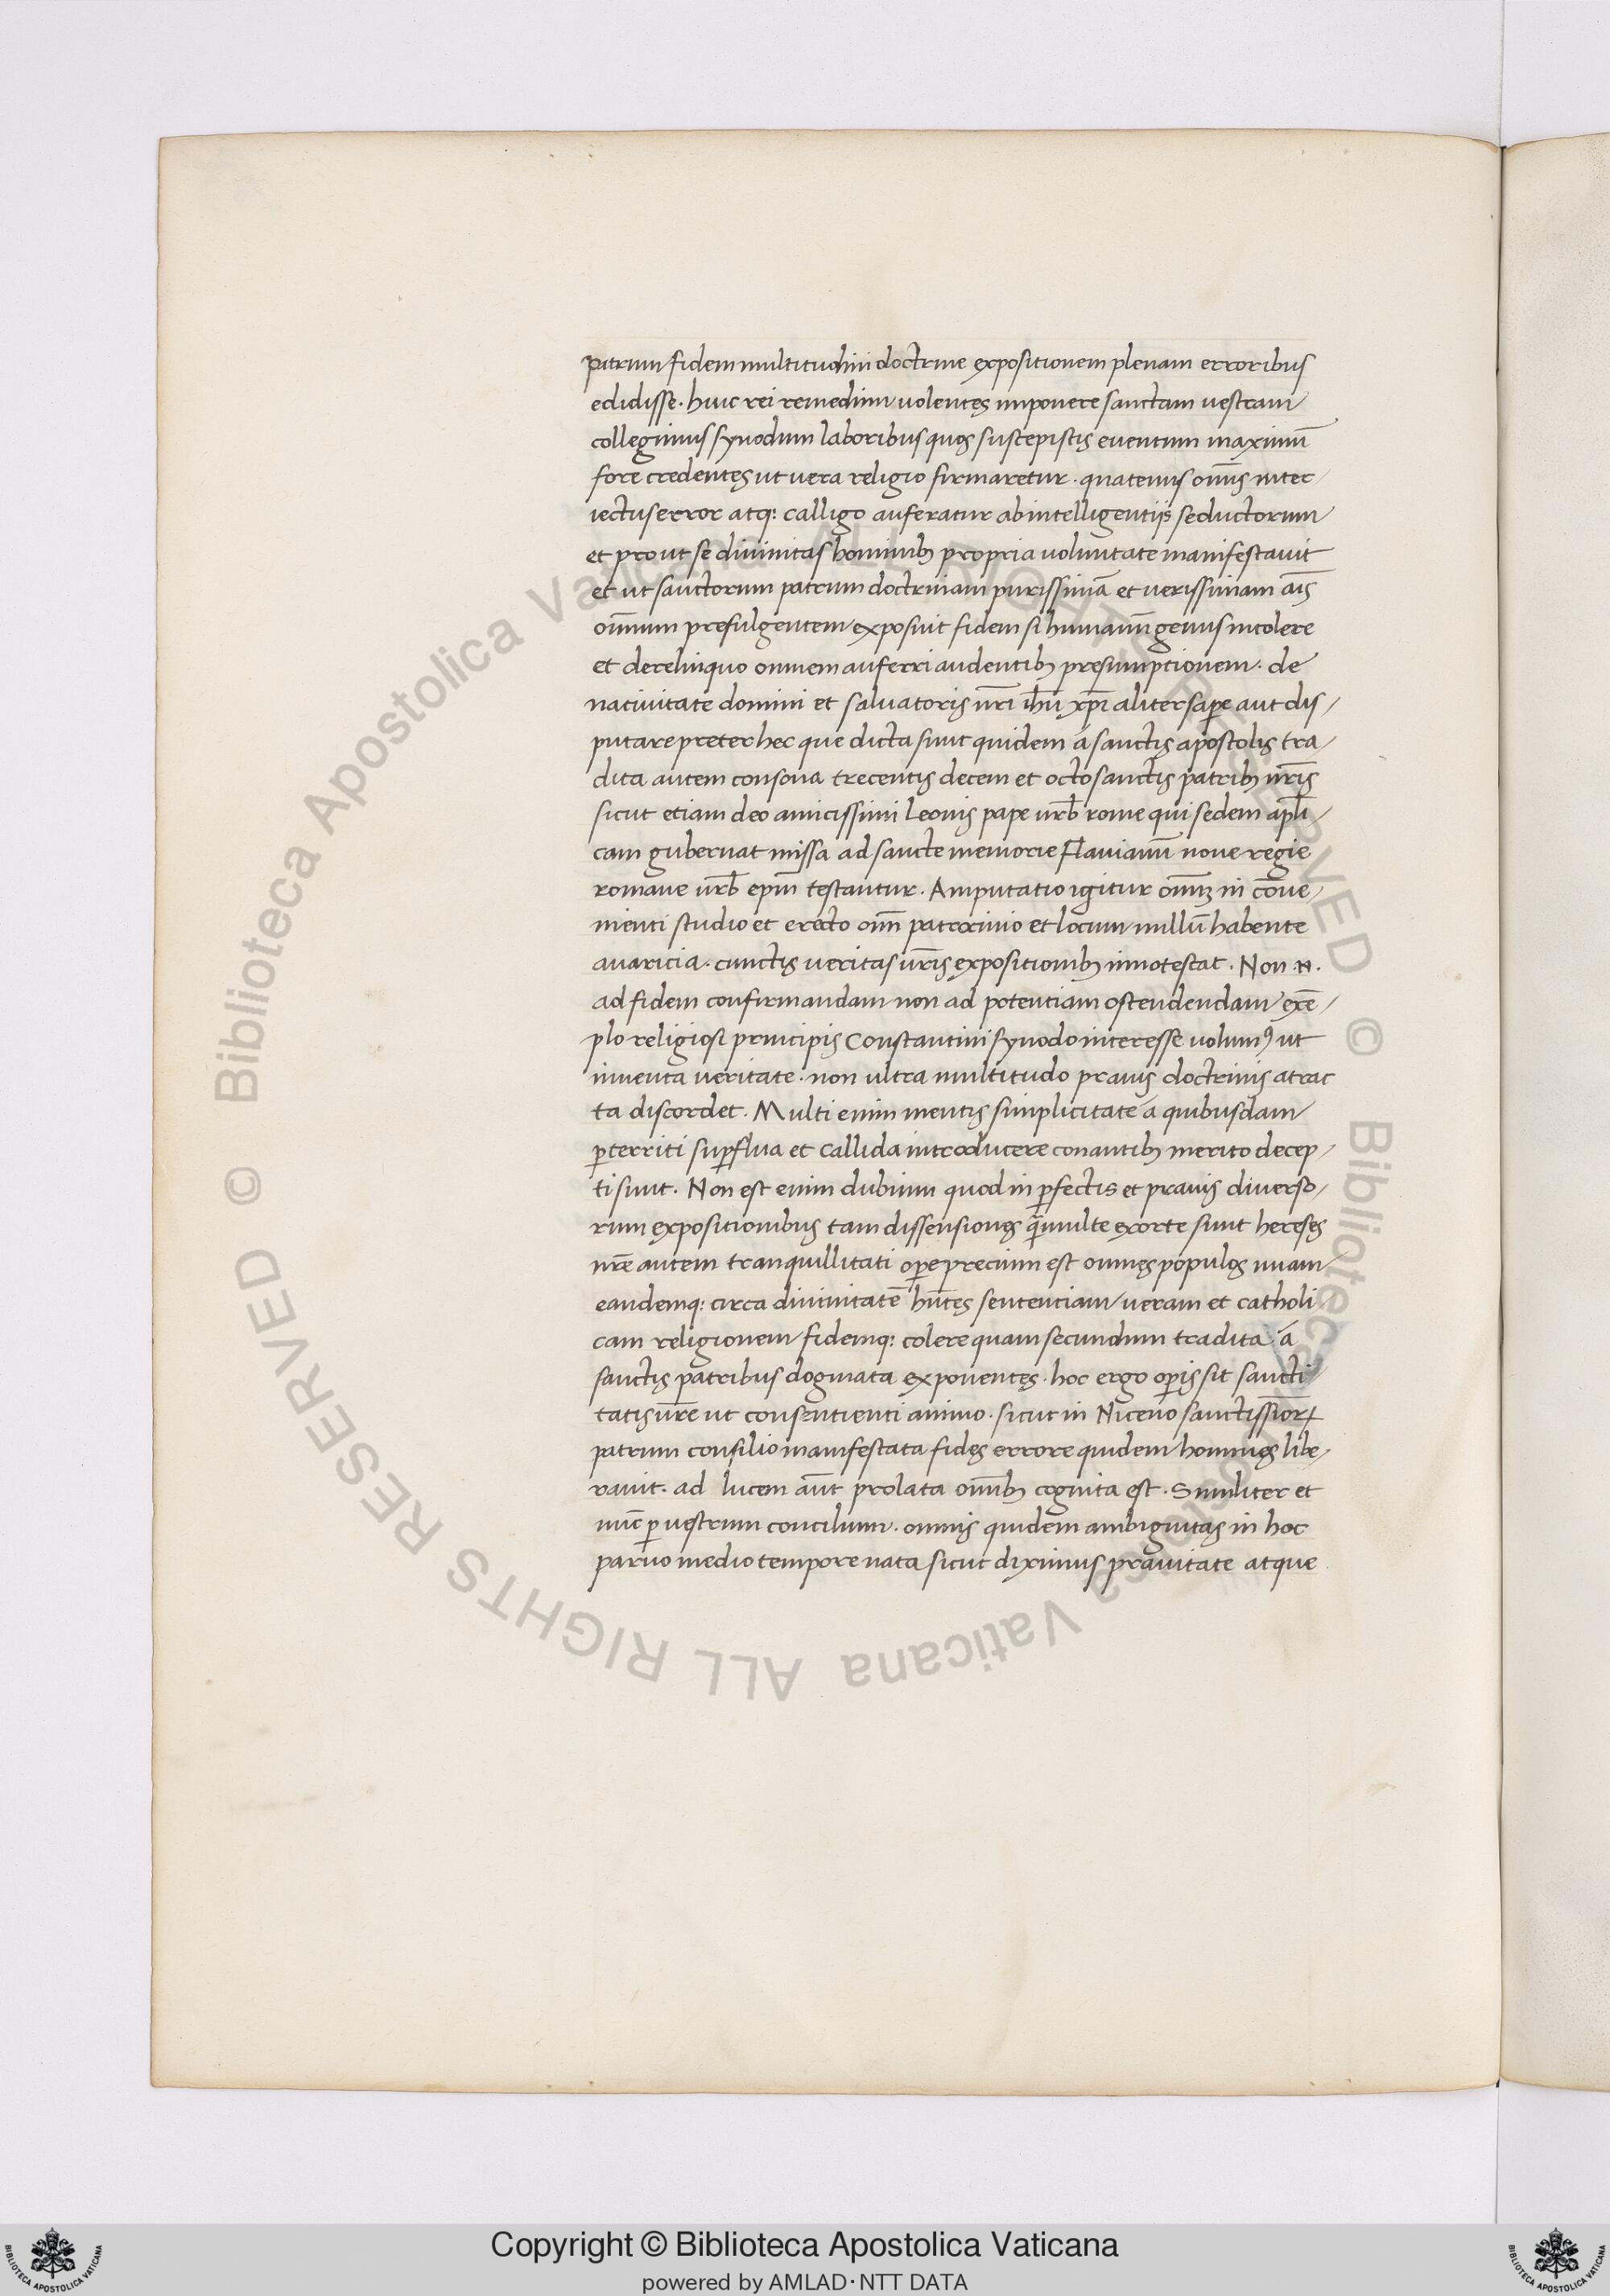 patrum fidem multitudini doctrine expositionem plenam erroribus
edidisse. huic rei remedium volentes imponere sanctam vestram
collegimus synodum laboribus quos suscepistis eventum maximū
fore credentes ut vera religio firmaretur. quatenus om̄is inter
iectus error atq: calligo auferatur ab intelligentijs seductorum
et prout se divinitas hominib; propria voluntate manifestavit
et ut sanctorum patrum doctrinam purissimā et verissimam aīs
om̄ium prefulgentem exposuit fidem si humanū genus incolere
et derelinquo omnem auferri audentib; presumptionem. de
nativitate domini et salvatoris nr̄i ih̄u xp̄i aliter sap̱e aut dis/
putare preter hec que dicta sunt quidem á sanctis apostolis tra/
dita autem consona trecentis decem et octo sanctis patrib; nr̄is
sicut etiam deo amicissimi Leonis pape urb̄ rome qui sedem apl̄i/
cam gubernat missa ad sancte memorie Flavianū nove regie
romane urb̄ ep̄m testantur. Amputatio igitur om̄iuʒ in cōve/
nienti studio et erecto om̄i patrocinio et locum nullū habente
avaricia. cunctis veritas vr̄is expositionib; innotescat. Non .n.
ad fidem confirmandam non ad potentiam ostendendam exē/
plo religiosi principis Constantini synodo interesse volumꝰ ut
inventa veritate. non ultra multitudo pravis doctrinis atrac
ta discordet. Multi enim mentis simplicitate á quibusdam
ꝑterriti suꝑflua et callida introducere conantib; merito decep/
ti sunt. Non est enim dubium quod in ꝑfectis et pravis diverso/
rum expositionibus tam dissensiones q̄m multe exorte sunt hereses
nr̄e autem tranquillitati oꝑe precium est omnes populos unam
eandemq: circa divinitatē hn̄tes sententiam veram et catholi
cam religionem fidemq: colere quam secundum tradita á
sanctis patribus dogmata exponentes. hoc ergo oꝑis sit sancti/
tatis vr̄e ut consentienti animo. sicut in Niceno sanctissīorꝝ
patrum consilio manifestata fides errore quidem homines libe/
ravit. ad lucem aūt prolata om̄ib; cognita est. Similiter et
nūc ꝑ vestrum concilium. omnis quidem ambiguitas in hoc
parvo medio tempore nata sicut diximus pravitate atque
© Biblioteca Apostolica Vaticana ALL RIGHTS RESERVED © Biblioteca Apostolica Vaticana ALL RIGHTS RESERVED
Copyright © Biblioteca Apostolica Vaticana
powered by AMLAD·NTT DATA
BIBLIOTECA APOSTOLICA VATICANA
BIBLIOTECA APOSTOLICA VATICANA